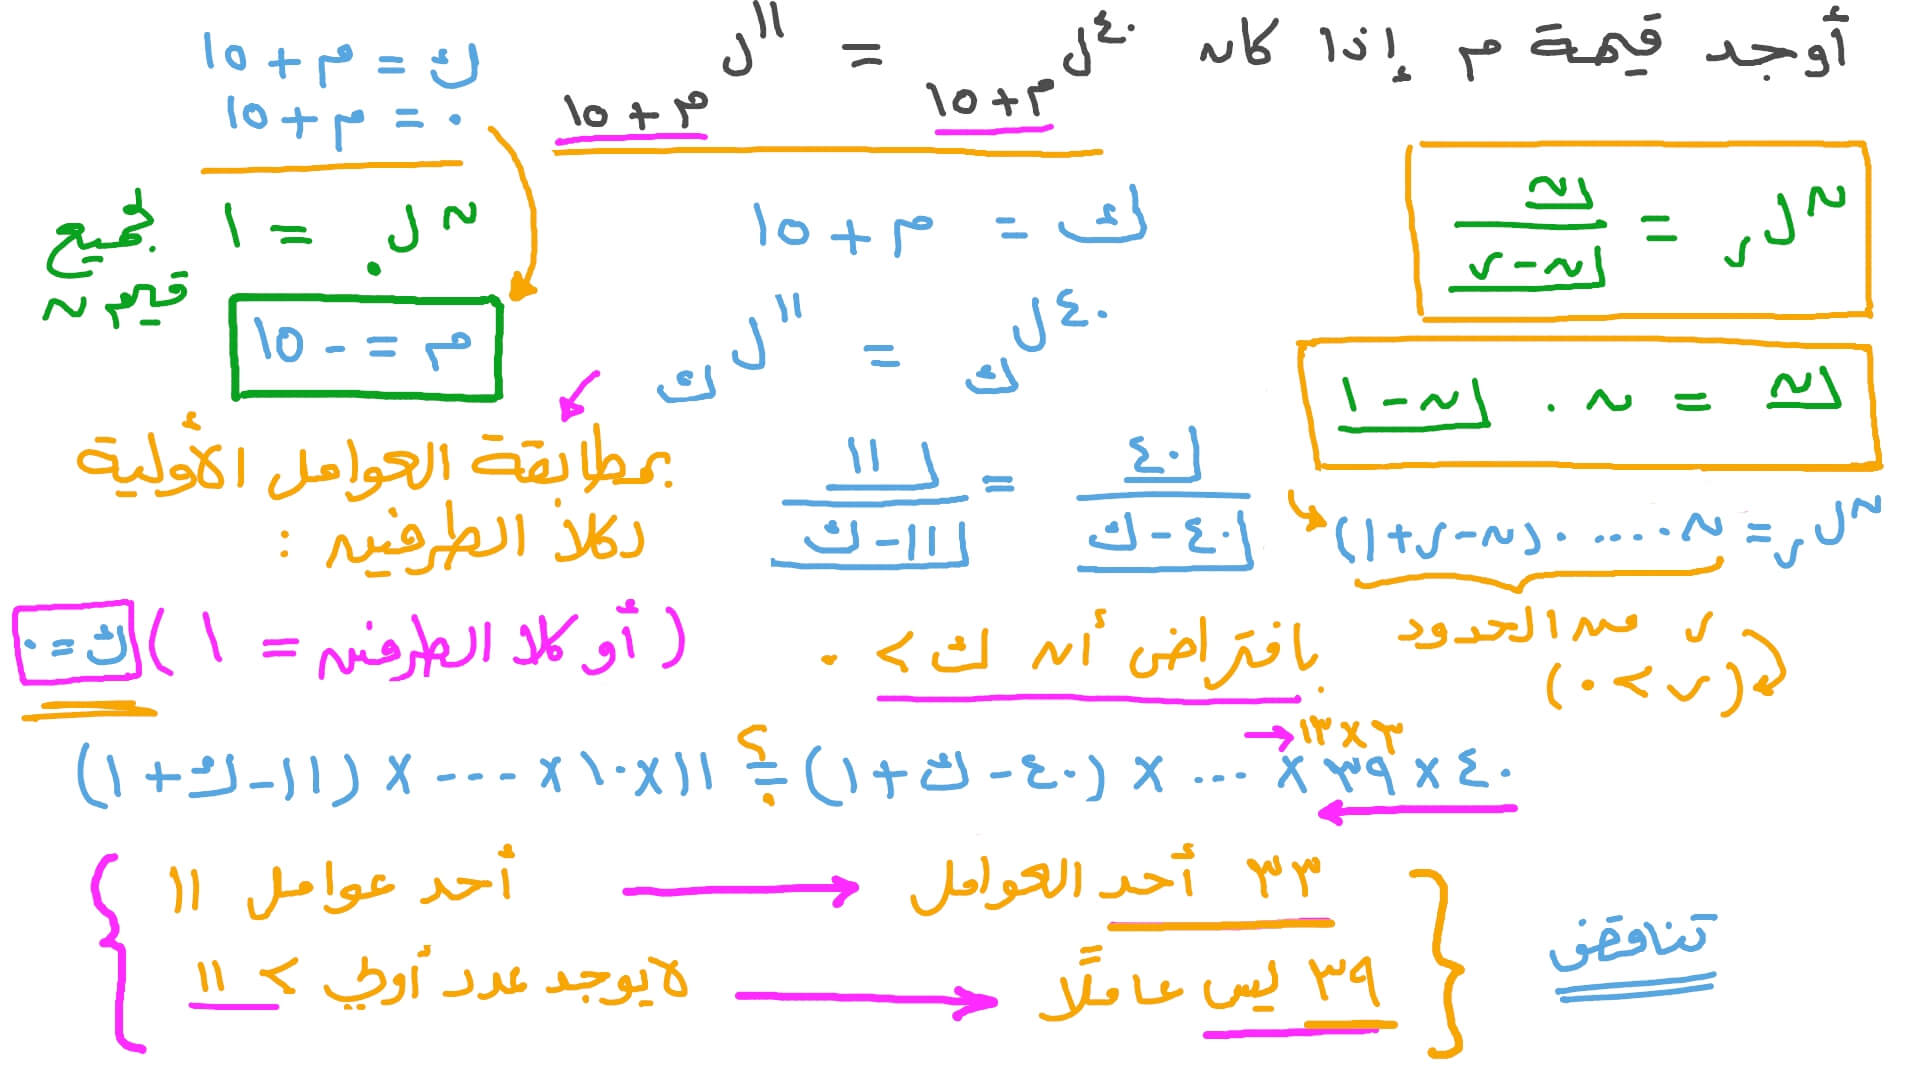 أوجد قيمة م إذا كان ⁴⁰ل م+١٥ = ¹¹ل م+١٥
ك = م + ١٥
٠ = م + ١٥
ⁿل٠ = ١ لجميع قيم ن
م = - ١٥
ك = م + ١٥
⁴⁰ل ك = ¹¹ل ك
ⁿل ر = ⌊ن / ⌊ن-ر
⌊ن = ن . ⌊ن-١
⌊٤٠ / ⌊٤٠-ك = ⌊١١ / ⌊١١-ك
ⁿل ر = ن ..... (ن-ر+١)
ر من الحدود
(ر > ٠)
بمطابقة العوامل الأولية
لكلا الطرفين :
بافتراض أن ك > ٠
(أو كلا الطرفين = ١) ك = ٠
١٣ × ٣
٤٠ × ٣٩ × ... × (٤٠-ك+١) =؟ ١١×١٠× --- × (١١-ك+١)
٣٣ أحد العوامل ← أحد عوامل ١١
٣٩ ليس عاملًا ← لا يوجد عدد أولي > ١١
تناقض